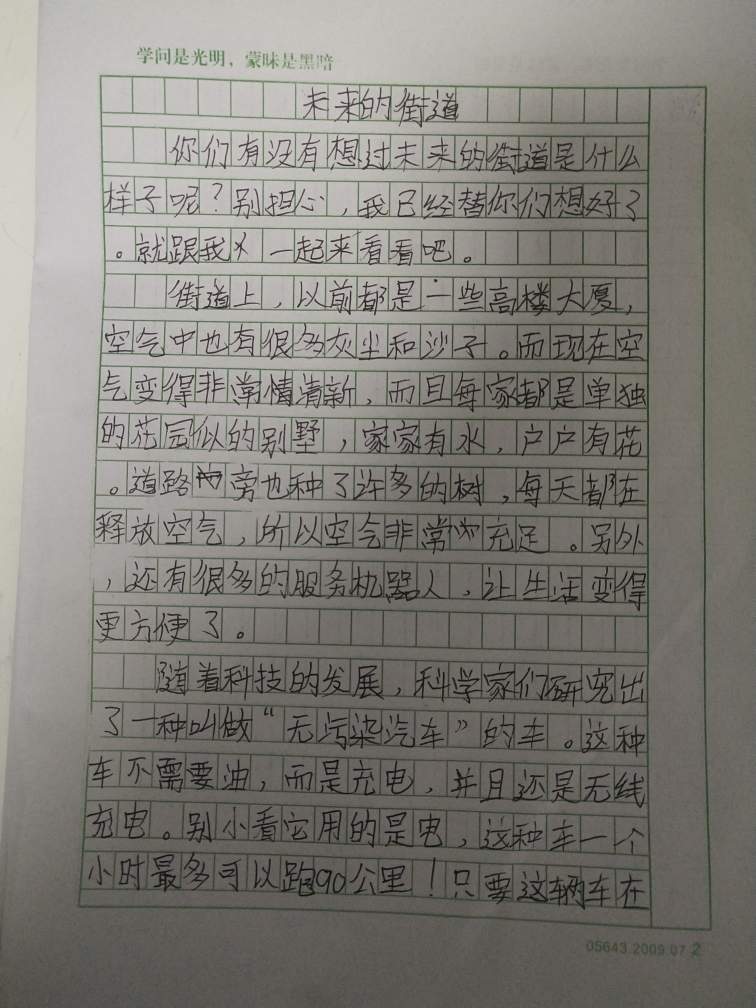 学问是光明，蒙昧是黑暗
未来的街道
你们有没有想过未来的街道是什么
样子呢？别担心，我已经替你们想好了
。就跟我一起来看看吧。
街道上，以前都是一些高楼大厦，
空气中也有很多灰尘和沙子。而现在空
气变得非常情清新，而且每家都是单独
的花园似的别墅，家家有水，户户有花
。道路两旁也种了许多的树，每天都在
释放空气，所以空气非常充足。另外
，还有很多的服务机器人，让生活变得
更方便了。
随着科技的发展，科学家们研究出
了一种叫做“无污染汽车”的车。这种
车不需要油，而是充电，并且还是无线
充电。别小看它用的是电，这种车一个
小时最多可以跑90公里！只要这辆车在
05643.2009.07 2